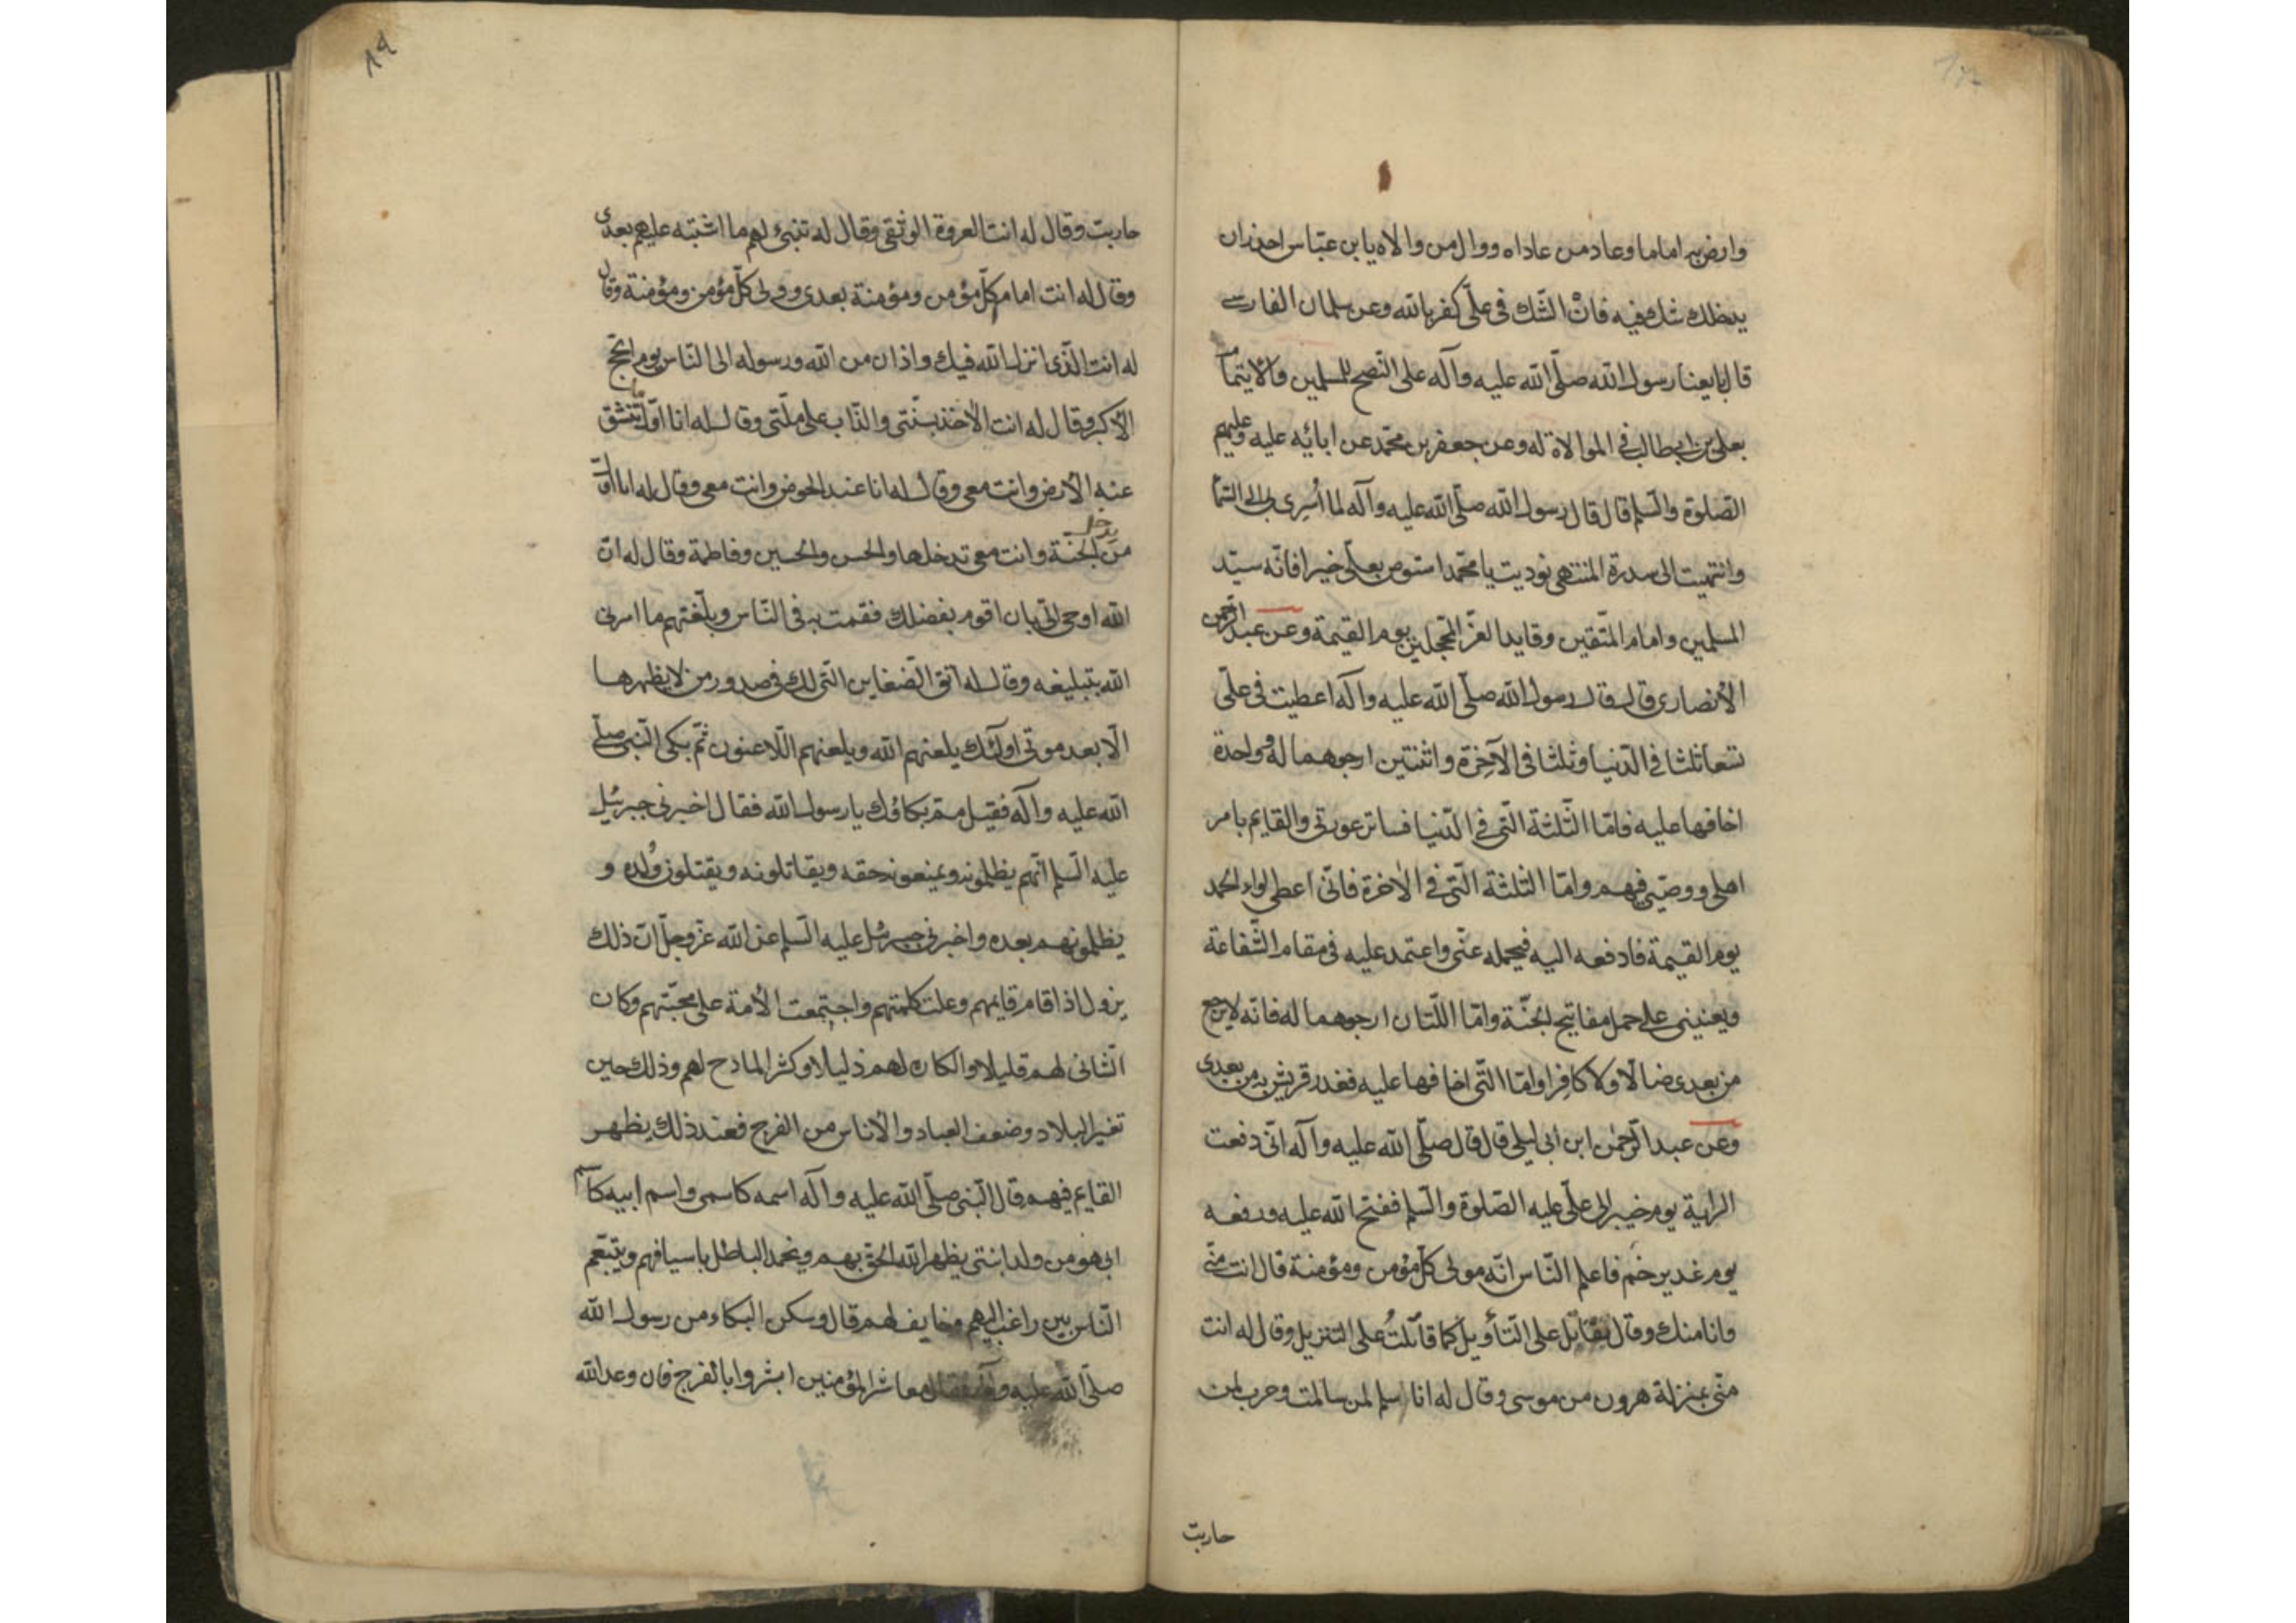 وارض به اماما وعاد من عاداه ووال من والاه يا بن عبّاس احذر ان
يدخلك شك فيه فانّ الشّك فى علّى كفر بالله وعن سلمان الفارسے
قال بايعنا رسول الله صلّى الله عليه وآله على النّصح للمسلمين والايتمام
بعلى بن ابيطالب فى الموالاة له وعن جعفر بن محمّد عن ابائه عليه وعليهم
الصّلوة والسّلم قال قال رسول الله صلّى الله عليه وآله لما اُسرِى بى الى السّما
وانتهيت الى سدرة المنتهى نوديت يا محمّد استوص بعلّى خيرا فانّه سيّد
المسلمين وامام المتّقين وقايد الغرّ المحجلين يوم القيمة وعن عبد الرّحمن
الأنصارى قال قال رسول الله صلّى الله عليه وآله اعطيت فى علّى
تسعا ثلثا فى الدّنيا وثلثا فى الآخرة واثنتين ارجوهما له وواحدة
اخافها عليه فامّا الثّلثة الّتى فى الدّنيا فساتر عورتى والقايم بامر
اهلى ووصيّى فيهم وامّا الثلثة الّتى فى الاخرة فانّى اعطى لواء الحمد
يوم القيمة فادفعه اليه فيحمله عنّى واعتمد عليه فى مقام الشّفاعة
ويعيننى على حمل مفاتيح الجنّة وامّا اللّتان ارجوهما له فانّه لا يرجع
من بعدى ضالّا ولا كافرا وامّا الّتى اخافها عليه فغدر قريش به من بعدى
وعن عبد الرّحمٰن ابن ابى ليلى قال قال صلّى الله عليه وآله انّى دفعت
الراية يوم خيبر الى علّى عليه الصّلوة والسّلم ففتح الله عليه ورفعه
يوم غدير خم فاعلم النّاس انّه مولى كلّ مؤمن ومؤمنة قال انت منّى
وانا منك وقال تقاتل على التّأويل كما قاتلتُ على التنزيل وقال له انت
منّى بمنزلة هرون من موسى وقال له انا سلم لمن سالمت وحرب لمن
حاربت
حاربت وقال له انت العروة الوثقى وقال له تبنئ لهم ما اشتبه عليهم بعدى
وقال له انت امام كلّ مؤمن ومؤمنة بعدى وولى كلّ مؤمن ومؤمنة وقال
له انت الّذى انزل الله فيك واذان من الله ورسوله الى النّاس يوم الحجّ
الأكبر وقال له انت الأخذ بسنّتى والذّاب على ملّتى وقال له انا اوّل ما تنشق
عنه الأرض وانت معى وقال له انا عند الحوض وانت معى وقال له انا اوّل
من يدخل الجنّة وانت معى تدخلها والحسن والحسين وفاطمة وقال له انّ
الله اوحى الىّ بان اقوم بفضلك فقمت به فى النّاس وبلّغتهم ما امرنى
الله بتبليغه وقال له اتق الضّغاين الّتى لك فى صدور من لا يظهرها
الّا بعد موتى اولٰئك يلعنهم الله ويلعنهم اللّاعنون ثمّ بكى النّبى صلّى
الله عليه وآله فقيل ممّ بكاؤك يا رسول الله فقال اخبرنى جبرئيل
عليه السّلم انّهم يظلمونه ويمنعونه حقه ويقاتلونه ويقتلون وُلده و
يظلمونهم بعده واخبرنى جبرئيل عليه السّلم عن الله عزّ وجلّ انّ ذلك
يزول اذا قام قايمهم وعلت كلمتهم واجتمعت الأمة على محبّتهم وكان
الشّانى لهم قليلا والكاره لهم ذليلا وكثر المادح لهم وذلك حين
تغير البلاد وضعف العباد والأناس من الفرج فعند ذلك يظهر
القايم فيهم قال النّبى صلّى الله عليه وآله اسمه كاسمى واسم ابيه كاسم
ابى هو من ولد ابنتى يظهر الله الحق بهم ويخمد الباطل باسيافهم ويتبعهم
النّاس بين راغب اليهم وخايف لهم قال وسكن البكاء من رسول الله
صلّى الله عليه وآله فقال معاشر المؤمنين ابشروا بالفرج فان وعد الله